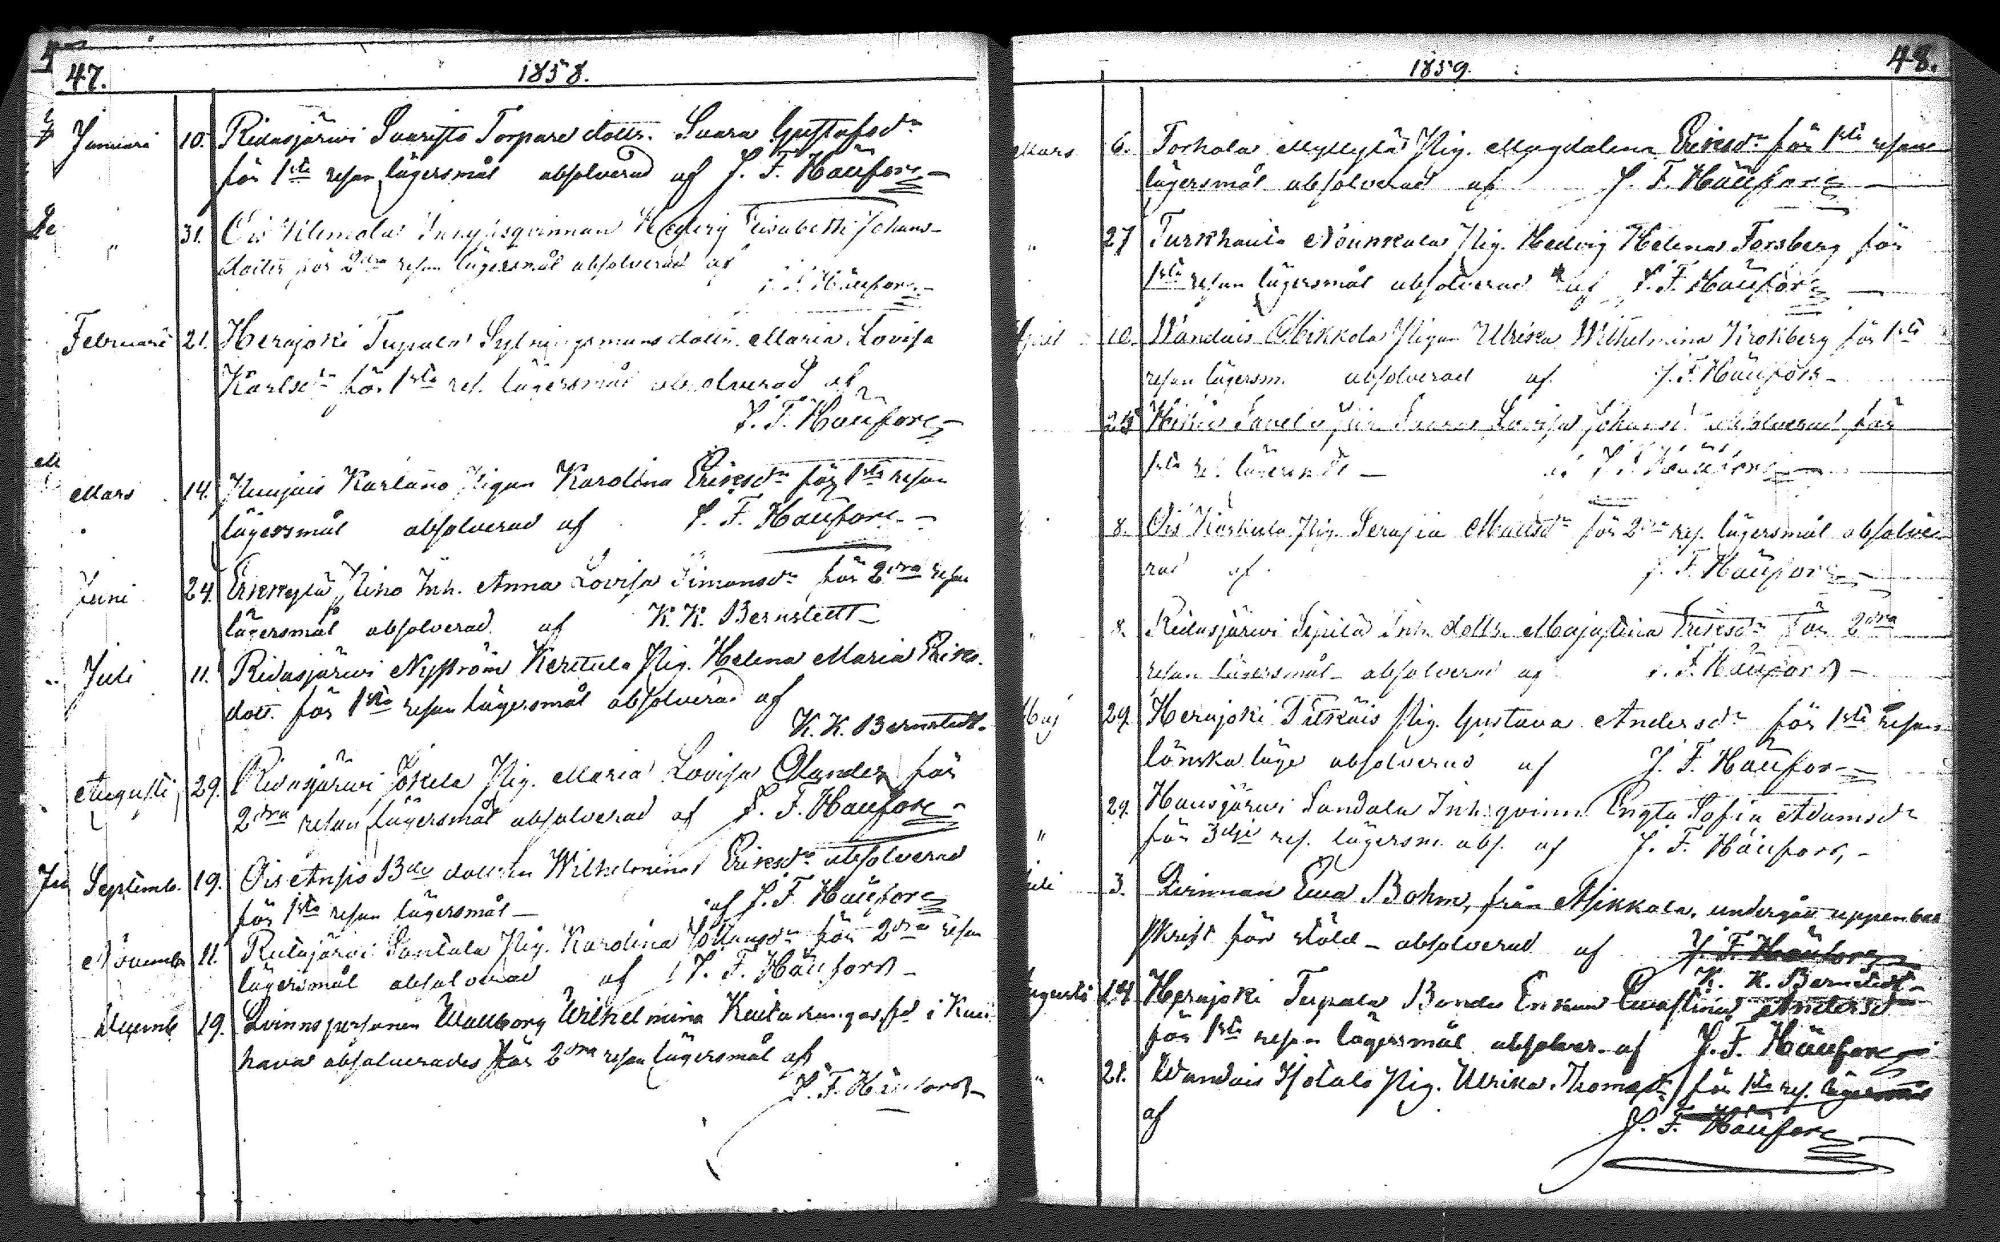 47.
1858.
Januari 10. Ridasjärwi Saaristo Torpare dottr. Saara Gustafsdr
för 1sta resan lägersmål absolverad af J. F. Häufors
" 31. Ois Klemola Inhysesqvinnan Hedvig Elisabeth Johans-
dotter för 2dra resan lägersmål absolverad af
J. F. Häufors
Februari 21. Herajoki Tupala dottr. Maria Lovisa
Karlsdr för 1sta res. lägersmål absolverad af
J. F. Häufors
Mars 14. Karlano Pigan Karolina Eriksdr för 1sta resan
lägersmål absolverad af J. F. Häufors
Juni 24. Erkkylä Inh. Anna Lovisa Simonsdr för 2dra resan
lägersmål absolverad af K. K. Bernstedt
Juli 11. Ridasjärwi Nyström Kerttula Pig. Helena Maria Eriks-
dott. för 1sta resan lägersmål absolverad af
K. K. Bernstedt
Augusti 29. Ridasjärwi Jokela Pig. Maria Lovisa Olander för
2dra resan lägersmål absolverad af J. F. Häufors
Septemb. 19. Ois Anhjo Bde Wilhelmina Eriksdr absolverad
för 1sta resan lägersmål af J. F. Häufors
Novemb 11. Ridasjärwi Santala Pig. Karolina för 2dra resan
lägersmål absolverad af J. F. Häufors
Decemb 19. Qvinnspersonen Wallborg Wilhelmina i
absolverades för 2dra resan lägersmål af
J. F. Häufors
48.
1859.
Mars 6. Torhola Myllylä Pig. Magdalena Eriksdr för 1sta resan
lägersmål absolverad af J. F. Häufors
" 27 Turkhauta Nounkala Pig. Hedvig Helena Forsberg för
1sta resan lägersmål absolverad af J. F. Häufors
April 10. Wandais Mikkola Pigan Ulrika Wilhelmina Krokberg för 1sta
resan lägersm. absolverad af J. F. Häufors
25 Lovisa Johansdr absolverad för
1sta res. lägersmål af J. F. Häufors
8. Ois Koskula Pig. Serafia Mattsdr för 2dra res. lägersmål absolve-
rad af J. F. Häufors
" 8. Ridasjärwi Seppälä Inh. dottr. Majastina Eriksdr för 2dra
resan lägersmål absolverad af J. F. Häufors
Maj 29. Herajoki Pitkäis Pig. Gustava Andersdr för 1sta resan
lönskaläge absolverad af J. F. Häufors
" 29. Hausjärwi Sandala Inh. qvinn. Engla Sofia Adamsdr
för 3dje res. lägersm. abs. af J. F. Häufors
Juli 3. Qvinnan Ewa Bohm, från Mikkola, undergått uppenbar
skrift för stöld absolverad af J. F. Häufors
K. K. Bernstedt
Augusti 14. Herajoki Tupala Bonde Enkan Ewastina Andersdr
för 1sta resan lägersmål absolver. af J. F. Häufors
" 21. Wandais Isotalo Pig. Ulrika Thomasdr för 1sta res. lägersmål
af J. F. Häufors